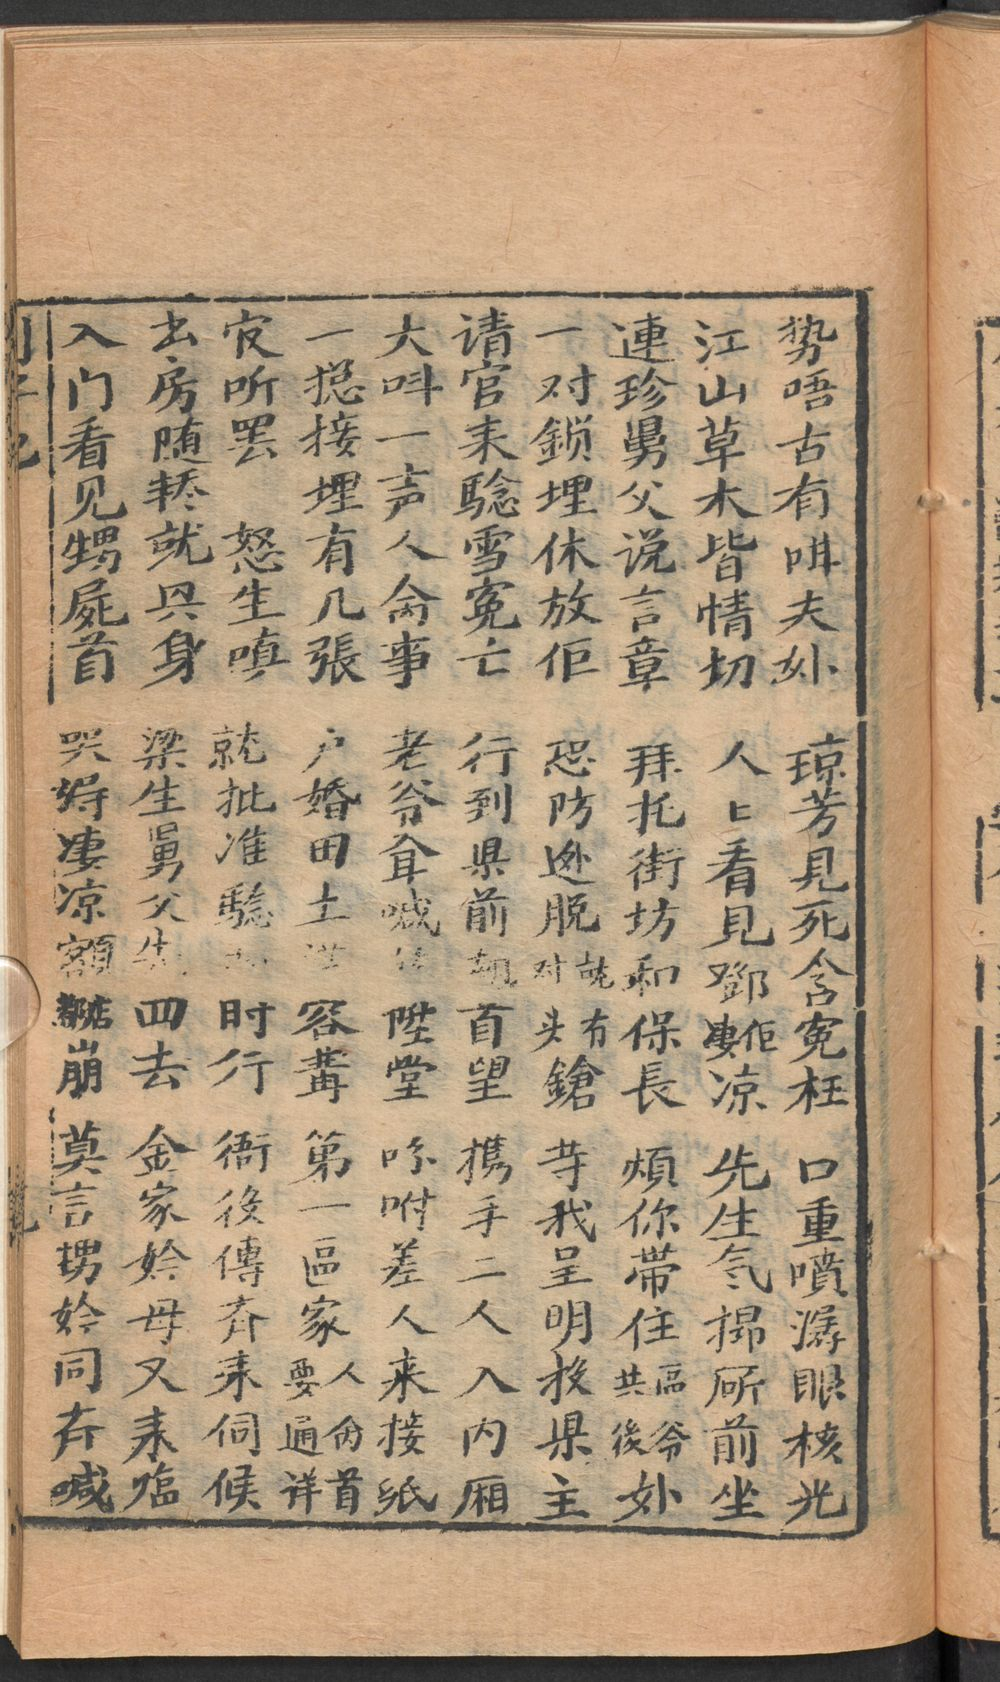 势唔古有咁夫妙 琼芳見死含冤枉 口重噴潺眼核光
江山草木皆情切 人匕看見鄧佢凄凉 先生气掃厛前坐
連珍舅父说言章 拜托街坊和保長 煩你帶住區爷共後妙
一对鎖埋休放佢 恐防迯脱就对有头鎗 等我呈明投県主
请官来騐雪冤亡 行到県前首望 携手二人入内厢
大呌一声人命事 老爷耸喊陞堂 吩咐差人来接紙
一摠接埋有几張 户婚田土容冓 第一區家人命首要通详
官听罢 怒生嗔 就批准騐时行 衙役傳齐来伺候
出房随轿就具身 梁生舅父四去 金家妗母又来臨
入门看见甥屍首 哭淂凄凉額都崩 莫言甥妗同齐喊